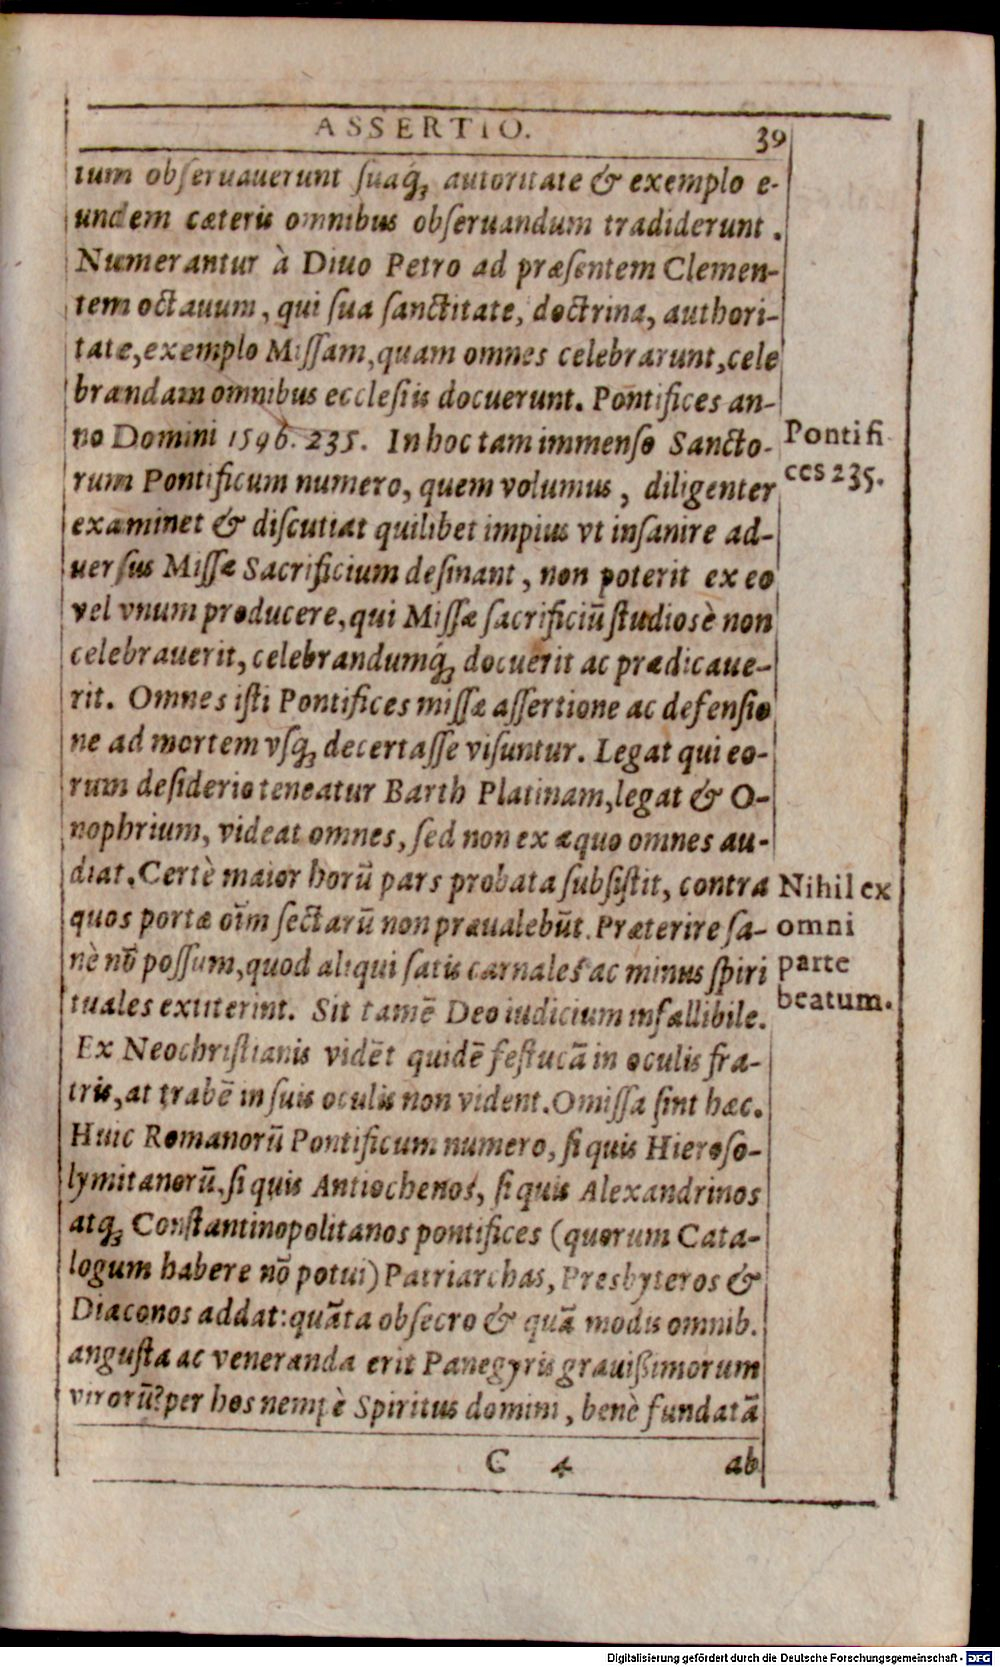 ASSERTIO. 39
tum obſeruauerunt ſuaq́; autoritate & exemplo e-
undem cæteris omnibus obſeruandum tradiderunt.
Numerantur à Diuo Petro ad præſentem Clemen-
tem octauum, qui ſua ſanctitate, doctrina, authori-
tate, exemplo Miſſam, quam omnes celebrarunt, cele
brandam omnibus eccleſiis docuerunt. Pontifices an-
no Domini 1596. 235. In hoc tam immenſo Sancto-
Pontifi
ces 235.
rum Pontificum numero, quem volumus, diligenter
examinet & diſcutiat quilibet impius vt inſanire ad-
uerſus Miſſæ Sacrificium deſinant, non poterit ex eo
vel vnum producere, qui Miſſæ ſacrificiū ſtudiosè non
celebrauerit, celebrandumq́; docuerit ac prædicaue-
rit. Omnes iſti Pontifices miſſæ aſſertione ac defenſio
ne ad mortem vſq; decertaſſe viſuntur. Legat qui eo-
rum deſiderio teneatur Barth Platinam, legat & O-
nophrium, videat omnes, ſed non ex æquo omnes au-
diat. Certè maior horū pars probata ſubſiſtit, contra
quos portæ oīm ſectarū non præualebūt. Præterire ſa-
nè nō poſſum, quod aliqui ſatis carnales ac minus ſpiri
tuales extiterint. Sit tamē Deo iudicium infallibile.
Nihil ex
omni
parte
beatum.
Ex Neochriſtianis vidēt quidē feſtucā in oculis fra-
tris, at trabē in ſuis oculis non vident. Omiſſa ſint hæc.
Huic Romanorū Pontificum numero, ſi quis Hieroſo-
lymitanorū, ſi quis Antiochenos, ſi quis Alexandrinos
atq; Conſtantinopolitanos pontifices (quorum Cata-
logum habere nō potui) Patriarchas, Presbyteros &
Diaconos addat: quāta obſecro & quā modis omnib.
anguſta ac veneranda erit Panegyris grauißimorum
virorū? per hos nempè Spiritus domini, benè fundatā
C 4 ab
Digitalisierung gefördert durch die Deutsche Forschungsgemeinschaft - DFG